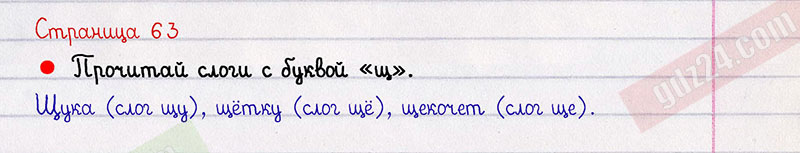 Страница 63
• Прочитай слоги с буквой «щ».
Щука (слог щу), щётку (слог щё), щекочет (слог ще).
gdz24.com